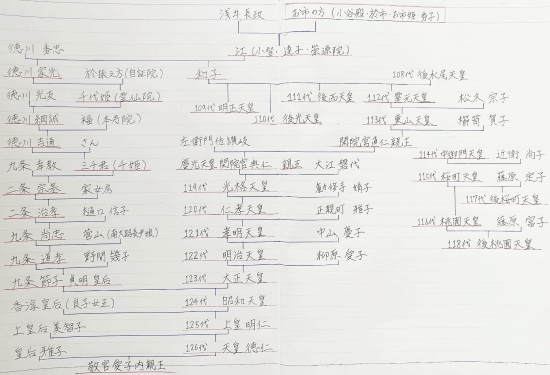 浅井長政 お市の方(小谷殿・於市・お市姫・秀子)
徳川 秀忠 江(小督・達子・崇源院)
徳川 家光 於振之方(自証院) 和子 108代 後水尾天皇
徳川 光友 千代姫(霊仙院) 109代 明正天皇 110代 後光天皇 111代 後西天皇 112代 霊元天皇 松木 宗子
徳川 綱誠 福(本寿院) 113代 東山天皇 櫛笥 賀子
徳川 吉通 さん 左衛門佐讃岐 閑院宮直仁親王 114代 中御門天皇 近衛 尚子
九条 幸教 三千君(千姫) 慶光天皇 閑院宮典仁 親王 大江 磐代 115代 桜町天皇 藤原 定子
二条 宗基 家女房 119代 光格天皇 勧修寺 婧子 117代 後桜町天皇
二条 治孝 樋口 信子 120代 仁孝天皇 正親町 雅子 116代 桃園天皇 藤原 富子
九条 尚忠 菅山(南大路長尹娘) 121代 孝明天皇 中山 慶子 118代 後桃園天皇
九条 道孝 野間 幾子 122代 明治天皇 柳原 愛子
九条 節子 貞明皇后 123代 大正天皇
香淳皇后(良子女王) 124代 昭和天皇
上皇后 美智子 125代 上皇 明仁
皇后 雅子 126代 天皇 徳仁
敬宮愛子内親王